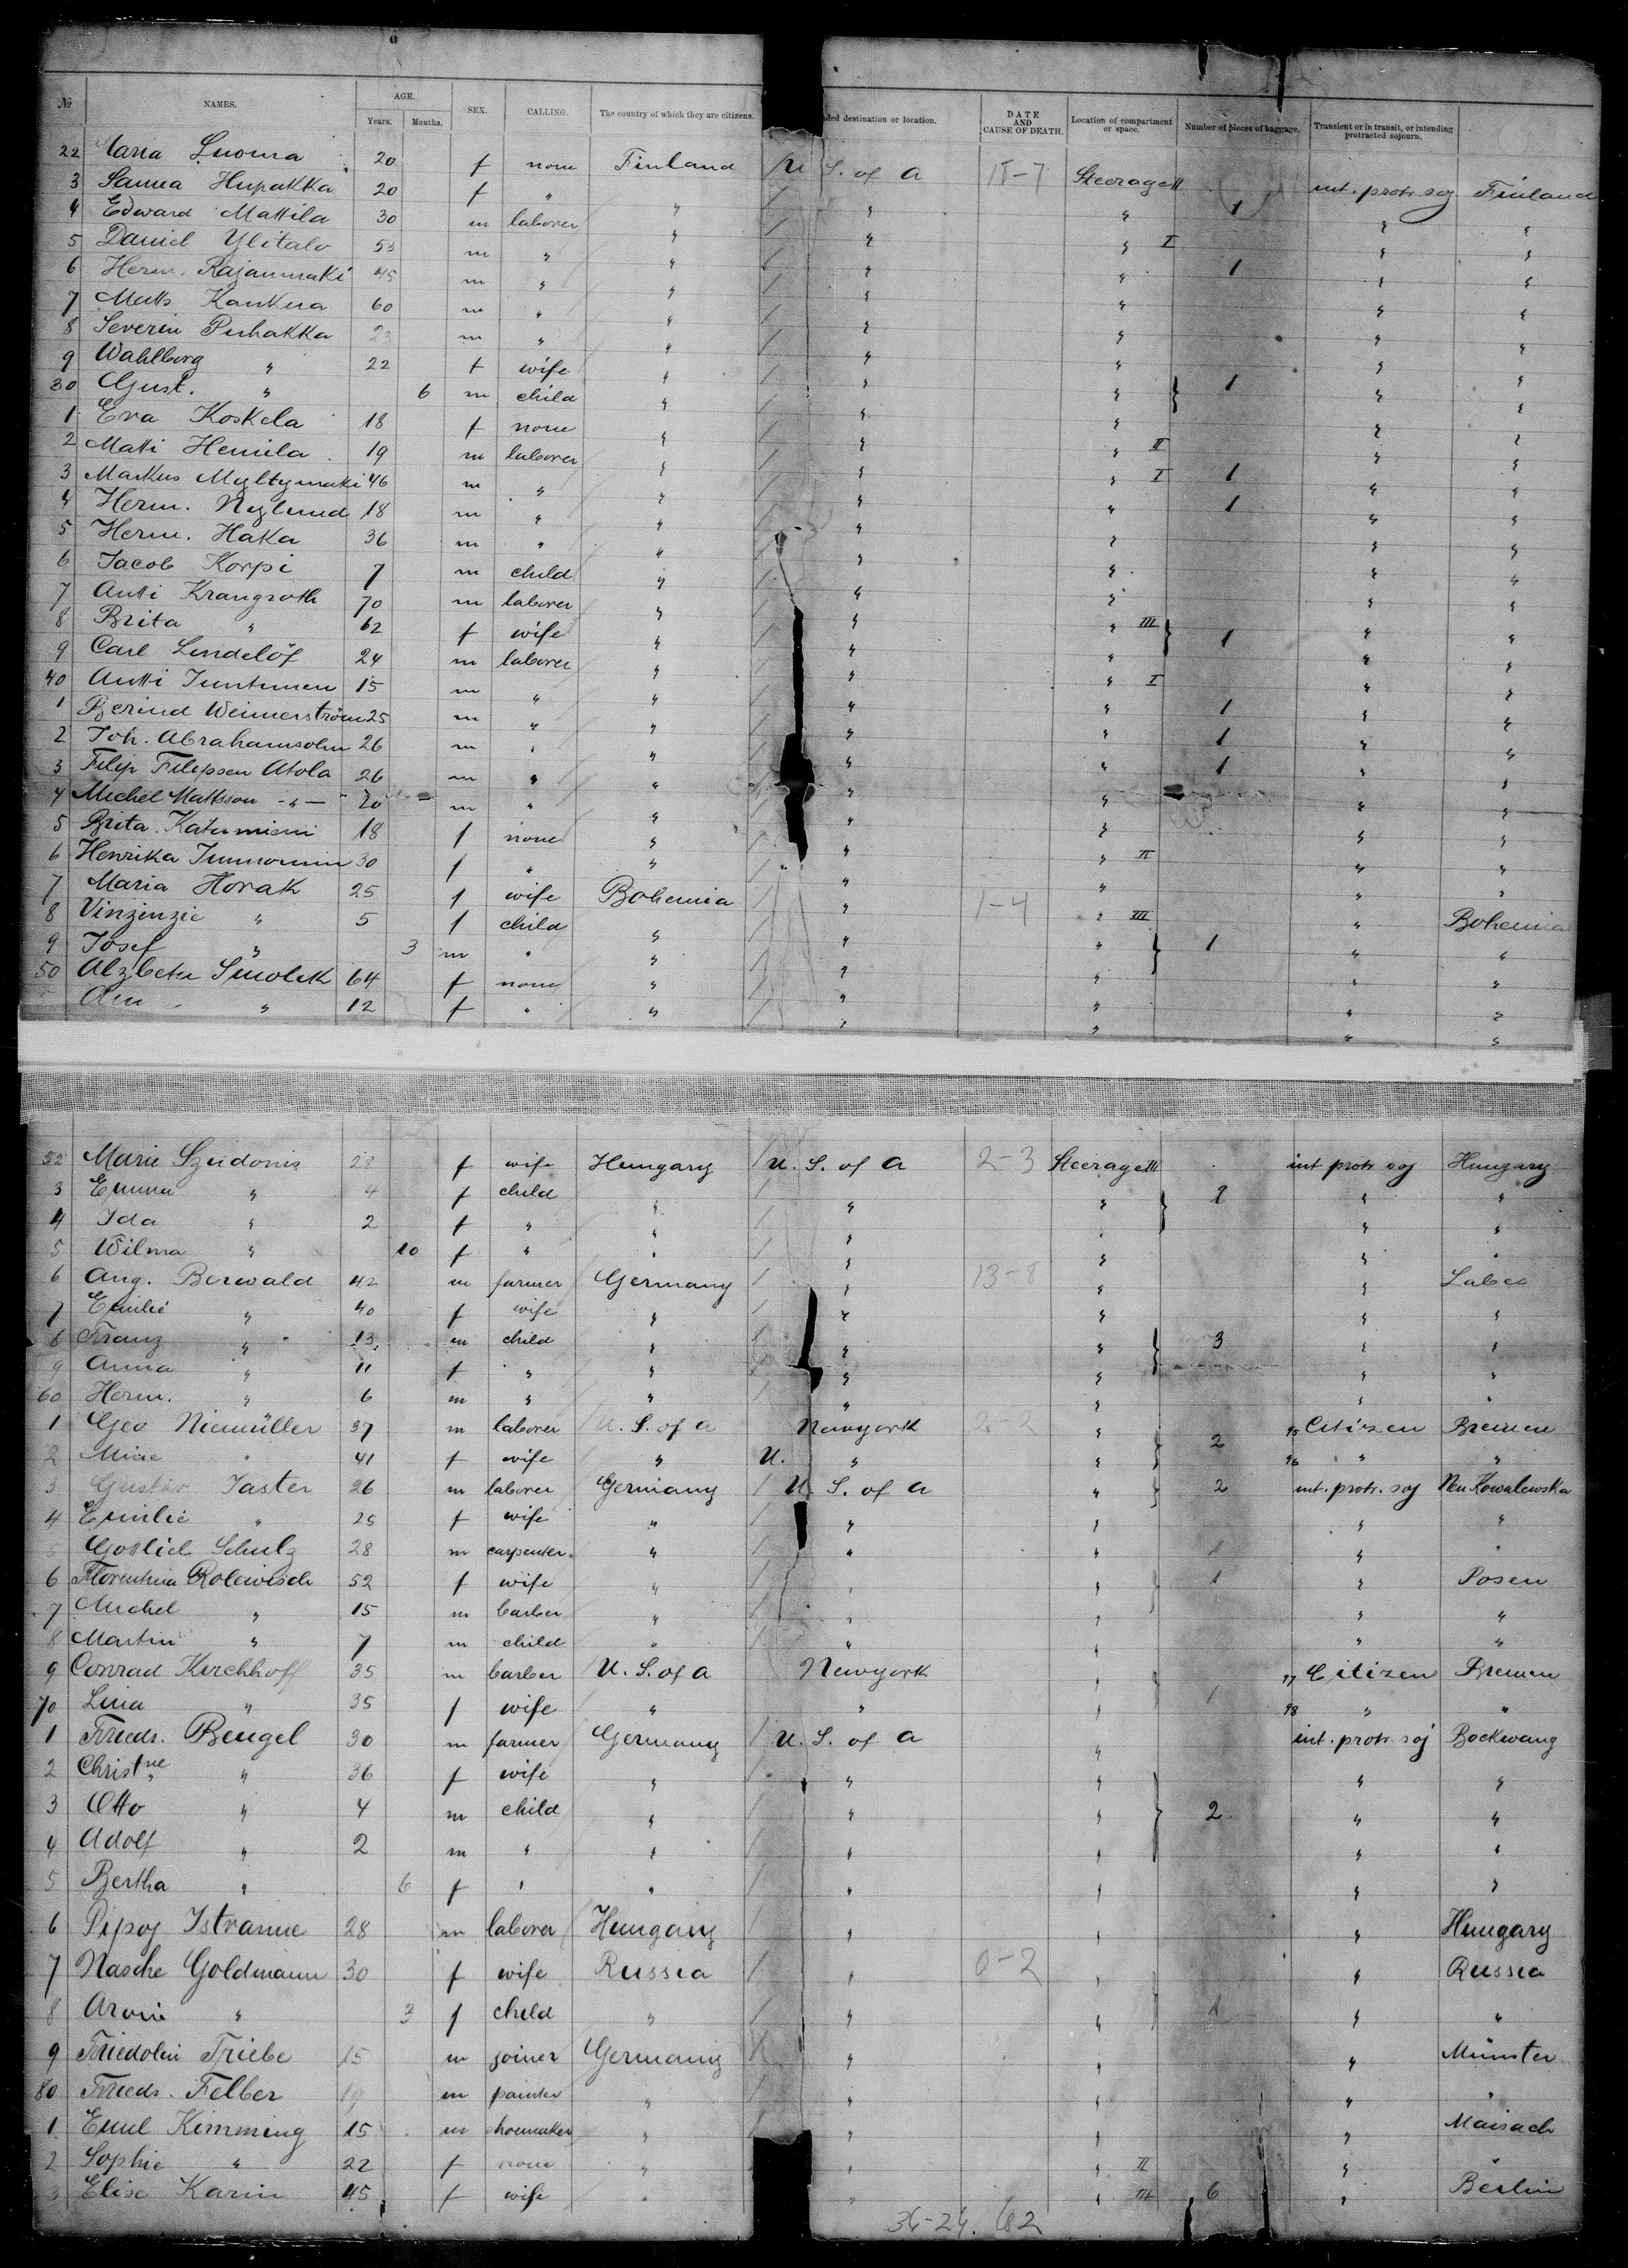 № NAMES. AGE. Years. Months. SEX. CALLING. The country of which they are citizens. ded destination or location. DATE AND CAUSE OF DEATH. Location of compartment or space. Number of pieces of baggage. Transient or in transit, or intending protracted sojourn.
22 Maria Luoma 20 f none Finland U S. of A 15-7 Steerage II int. protr. soj Finland
3 Sanna Hupakka 20 f " " " " 1 " "
4 Edward Mattila 30 m laborer " " " I " "
5 Daniel Ylitalo 53 m " " " " 1 " "
6 Herm. Rajanmaki 45 m " " " " " "
7 Matts Kankura 60 m " " " " " "
8 Severin Puhakka 23 m " " " " " "
9 Wahlborg " 22 f wife " " " 1 " "
30 Gust. " 6 m child " " " " "
1 Eva Koskela 18 f none " " " II " "
2 Matti Hemila 19 m laborer " " " I 1 " "
3 Markus Myltymaki 46 m " " " " 1 " "
4 Herm. Nyglund 18 m " " " " " "
5 Herm. Haka 36 m " " " " " "
6 Jacob Korpi 7 m child " " " " "
7 Antti Krangroth 70 m laborer " " " III 1 " "
8 Brita " 62 f wife " " " " "
9 Carl Lindelöf 24 m laborer " " " I " "
40 Antti Juntunen 15 m " " " " 1 " "
1 Berind Weimerström 25 m " " " " 1 " "
2 Joh. Abrahamsohn 26 m " " " " 1 " "
3 Filip Filipsen Atola 26 m " " " " " "
4 Michel Mattsson - " - 20 m " " " " " "
5 Brita Katumieni 18 f none " " " II " "
6 Henrika 30 f " " " " " "
7 Maria Horak 25 f wife Bohemia " 1-4 " III " Bohemia
8 Vinzenzie " 5 f child " " " 1 " "
9 Josef " 3 m " " " " " "
50 Alzbeta Smolek 64 f none " " " " "
" 12 f " " " " " "
52 Marie Szidonis 28 f wife Hungary U. S. of A 2-3 Steerage III int protr soj Hungary
3 Emma " 4 f child " " " " "
4 Ida " 2 f " " " " " "
5 Wilma " 10 f " " " " " "
6 Aug. Berwald 42 m farmer Germany " 13-8 " " Labes
7 Emilie " 40 f wife " " " " "
8 Franz " 13 m child " " " 3 " "
9 Anna " 11 f " " " " " "
60 Herm. " 6 m " " " " " "
1 Geo Niemüller 37 m laborer U. S. of A Newyork 2-2 " 2 95 Citizen Bremen
2 " 41 f wife " U. " " 96 " "
3 Gustav Jaster 26 m laborer Germany U S. of A " 2 int. protr. soj Neu Kowalewska
4 Emilie " 25 f wife " " " " "
5 Gottlieb Schulz 28 m carpenter " " " 1 " "
6 Florentina Rolewisch 52 f wife " " " 1 " Posen
7 Michel " 15 m barber " " " " "
8 Martin " 7 m child " " " " "
9 Conrad Kirchhoff 35 m barber U. S. of A Newyork " 97 Citizen Bremen
70 Lina " 35 f wife " " " 1 98 " "
1 Friedr. Bengel 30 m farmer Germany U. S. of A " int. protr. soj Backwang
2 Christne " 36 f wife " " " " "
3 Otto " 4 m child " " " 2 " "
4 Adolf " 2 m " " " " " "
5 Bertha " 6 f " " " " " "
6 Pipoy Istvanne 28 m laborer Hungary " " " Hungary
7 Nasche Goldmann 30 f wife Russia " 0-2 " " Russia
8 " 3 f child " " " 1 " "
9 Friedolin Triebe 15 m joiner Germany " " " Münster
80 Friedr. Felber 19 m painter " " " " "
1 Emil Kimming 15 m shoemaker " " " " Maisach
2 Sophie " 22 f none " " " II " "
3 Elise Karin 45 f wife " " " III 6 " Berlin
36-26. 62